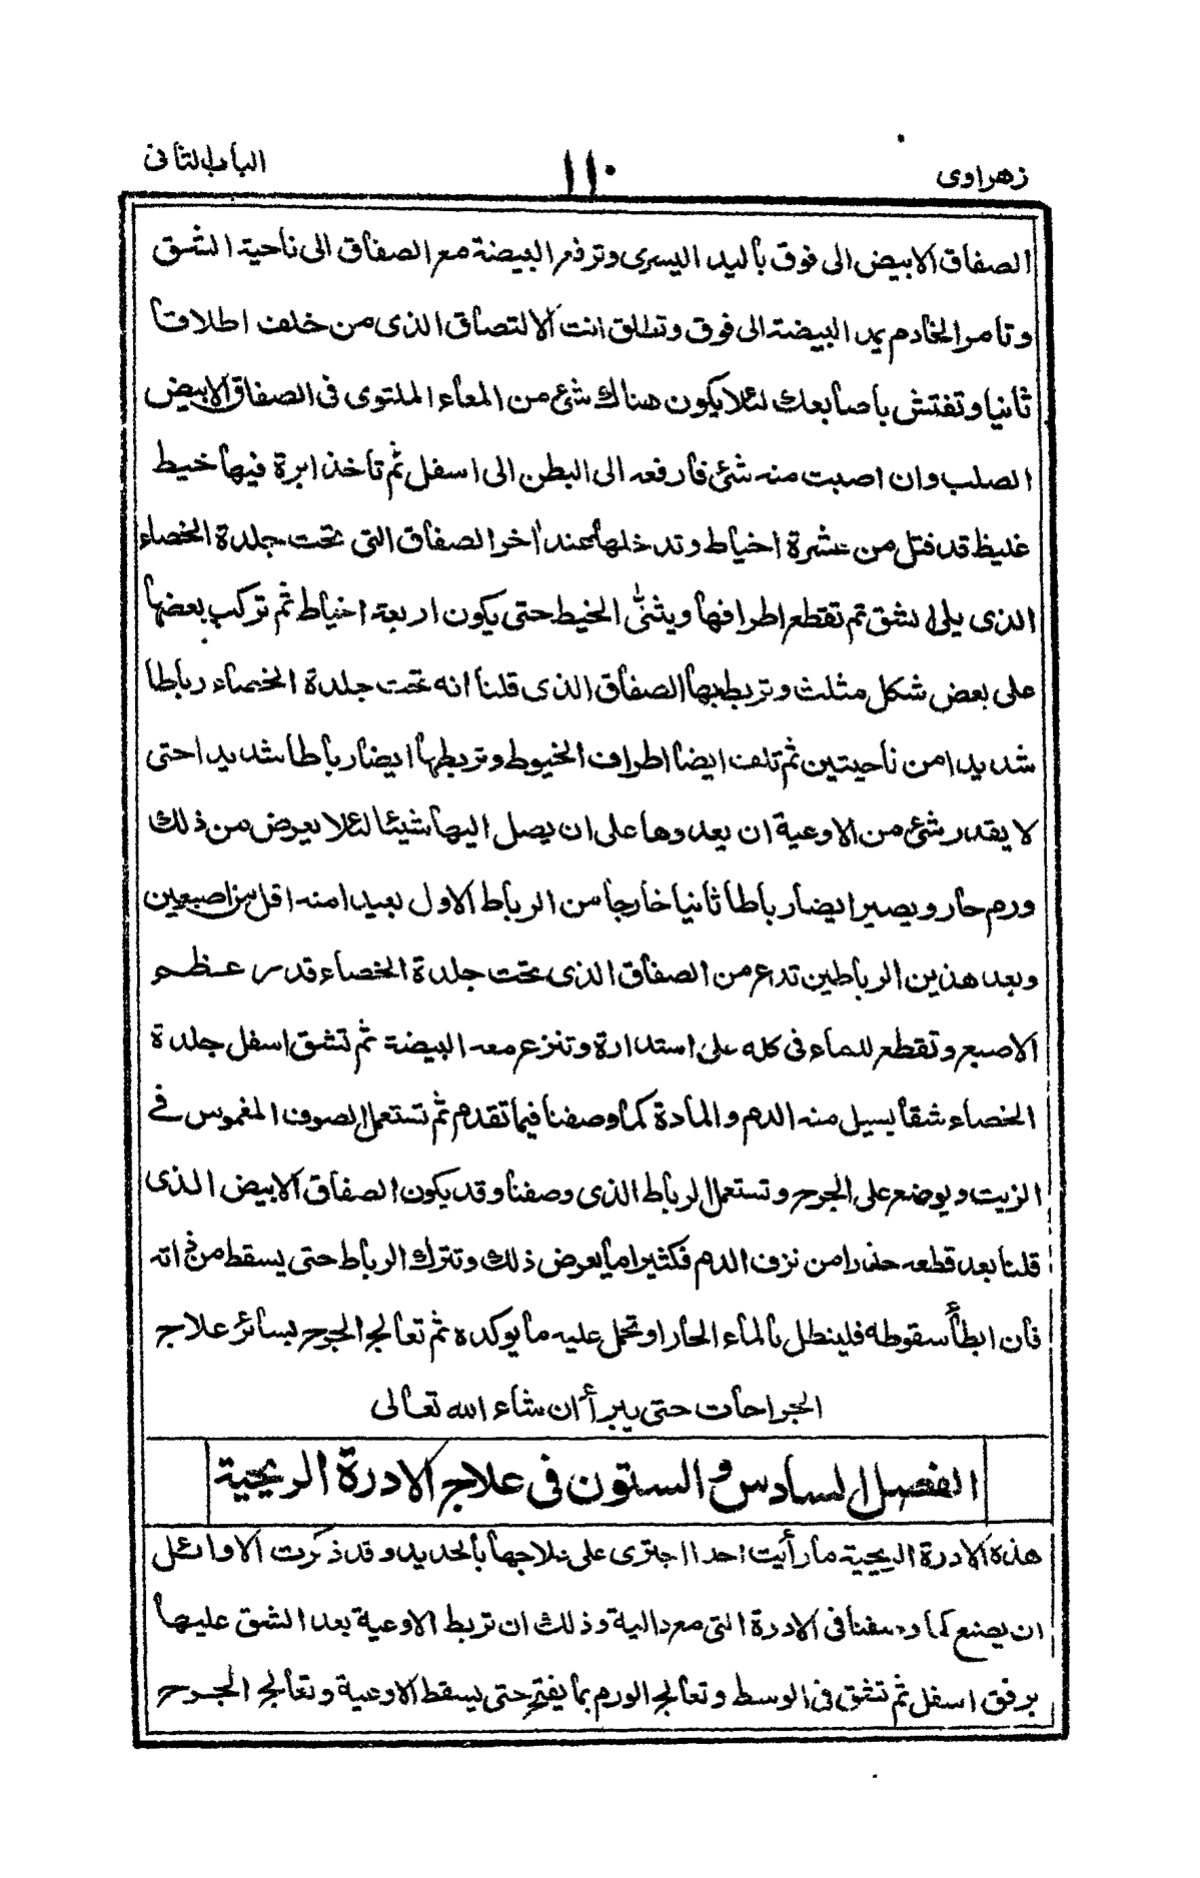 زهراوى ١١٠ الباب الثانى
الصفاق الابيض الى فوق باليد اليسرى وترفع البيضة مع الصفاق الى ناحية الشق
وتامر الخادم يمد البيضة الى فوق وتطلق انت الالتصاق الذى من خلف اطلاقا
ثانيا وتفتش باصابعك لئلا يكون هناك شئ من المعاء الملتوى فى الصفاق الابيض
الصلب وان اصبت منه شئ فارفعه الى البطن الى اسفل ثم تاخذ ابرة فيها خيط
غليظ قد فتل من عشرة اخياط وتدخلها عند اخر الصفاق التى تحت جلدة الخصاء
الذى يلى الشق ثم تقطع اطرافها ويثنّى الخيط حتى يكون اربعة اخياط ثم تركب بعضها
على بعض شكل مثلث وتربط بها الصفاق الذى قلنا انه تحت جلدة الخصاء رباطا
شديدا من ناحيتين ثم تلف ايضا اطراف الخيوط وتربطها ايضا رباطا شديدا حتى
لا يقدر شئ من الاوعية ان يعدوها على ان يصل اليها شيئا لئلا يعرض من ذلك
ورم حار ويصير ايضا رباطا ثانيا خارجا من الرباط الاول بعيدا منه اقل من اصبعين
وبعد هذين الرباطين تدع من الصفاق الذى تحت جلدة الخصاء قدر عظم
الاصبع وتقطع للماء فى كله على استدارة وتنزع معه البيضة ثم تشق اسفل جلدة
الخصاء شقا يسيل منه الدم والمادة كما وصفنا فيما تقدم ثم تستعمل الصوف المغموس فى
الزيت ويوضع على الجرح وتستعمل الرباط الذى وصفنا وقد يكون الصفاق الابيض الذى
قلنا بعد قطعه حذرا من نزف الدم فكثيرا ما يعرض ذلك وتترك الرباط حتى يسقط من ذاته
فان ابطأ سقوطه فلينطل بالماء الحار وتحمل عليه ما يوكده ثم تعالج الجرح بسائر علاج
الجراحات حتى يبرأ ان شاء الله تعالى
الفصل السادس والستون فى علاج الادرة الريحية
هذه الادرة الريحية ما رأيت احدا اجترى على علاجها بالحديد وقد ذكرت الاوائل
ان يصنع كما وصفنا فى الادرة التى مع دالية وذلك ان تربط الاوعية بعد الشق عليها
برفق اسفل ثم تشق فى الوسط وتعالج الورم بما يفتح حتى يسقط الاوعية وتعالج الجرح